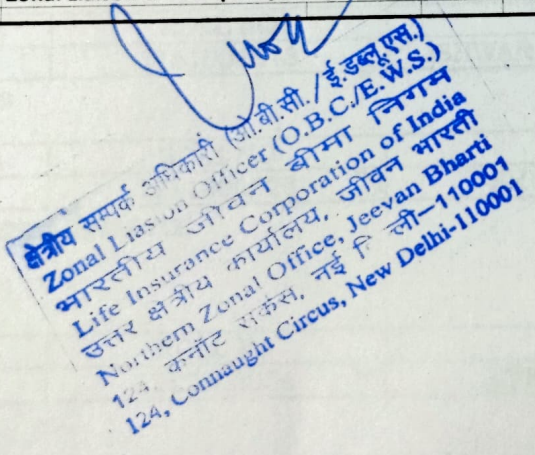 क्षेत्रीय सम्पर्क अधिकारी (ओ.बी.सी./ई.डब्लू.एस.)
Zonal Liasion Officer (O.B.C./E.W.S.)
भारतीय जीवन बीमा निगम
Life Insurance Corporation of India
उत्तर क्षेत्रीय कार्यालय, जीवन भारती
Northern Zonal Office, Jeevan Bharti
124, कनॉट सर्कस, नई दि ली-110001
124, Connaught Circus, New Delhi-110001